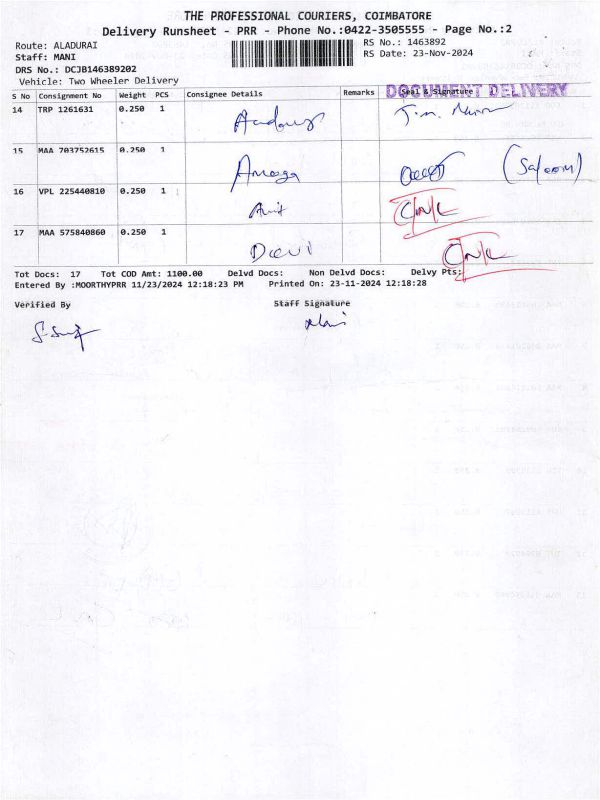 THE PROFESSIONAL COURIERS, COIMBATORE
Delivery Runsheet - PRR - Phone No.:0422-3505555 - Page No.:2
Route: ALADURAI
RS No.: 1463892
Staff: MANI
RS Date: 23-Nov-2024
DRS No.: DCJB146389202
Vehicle: Two Wheeler Delivery
DOCUMENT DELIVERY
S No Consignment No Weight PCS Consignee Details Remarks Seal & Signature
14 TRP 1261631 0.250 1
15 MAA 703752615 0.250 1
16 VPL 225440810 0.250 1 Amit CNL
17 MAA 575840860 0.250 1 Devi CNL
Tot Docs: 17 Tot COD Amt: 1100.00 Delvd Docs: Non Delvd Docs: Delvy Pts:
Entered By :MOORTHYPRR 11/23/2024 12:18:23 PM Printed On: 23-11-2024 12:18:28
Verified By Staff Signature
Mani